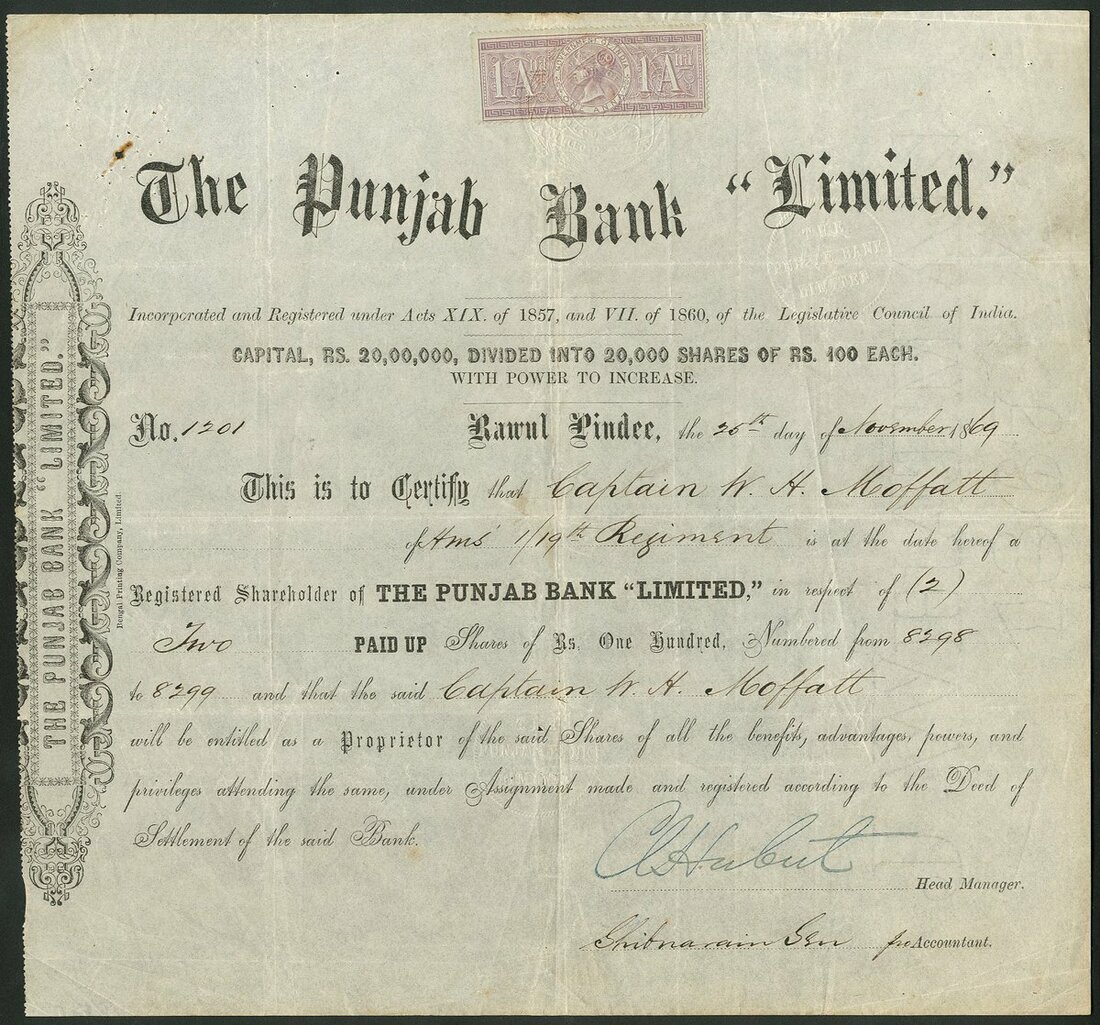 1 And GOVERNMENT OF INDIA ONE ANNA 1 And
The Punjab Bank “Limited.”
Incorporated and Registered under Acts XIX. of 1857, and VII. of 1860, of the Legislative Council of India.
CAPITAL, RS. 20,00,000, DIVIDED INTO 20,000 SHARES OF RS. 100 EACH.
WITH POWER TO INCREASE.
No. 1201 Rawul Pindee, the 25th day of November 1869
This is to Certify that Captain W. H. Moffatt
of Hms 1/19th Regiment is at the date hereof a
Registered Shareholder of THE PUNJAB BANK “LIMITED,” in respect of (2)
Two PAID UP Shares of Rs. One Hundred, Numbered from 8298
to 8299 and that the said Captain W. H. Moffatt
will be entitled as a Proprietor of the said Shares of all the benefits, advantages, powers, and
privileges attending the same, under Assignment made and registered according to the Deed of
Settlement of the said Bank.
Head Manager.
Shibnarain Sen pro Accountant.
THE PUNJAB BANK “LIMITED.”
Bengal Printing Company, Limited.